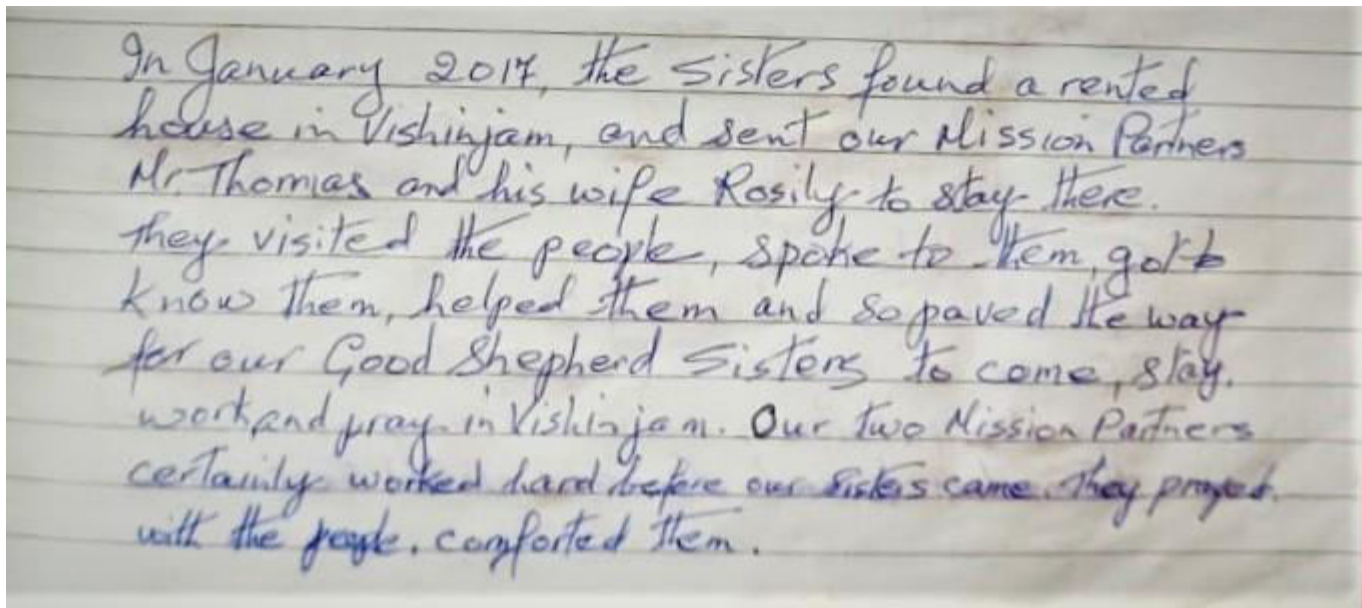 In January 2017, the Sisters found a rented
house in Vishinjam, and sent our Mission Partners
Mr. Thomas and his wife Rosily to stay there.
They visited the people, spoke to them, got to
know them, helped them and so paved the way
for our Good Shepherd Sisters to come, stay,
work and pray in Vishinjam. Our two Mission Partners
certainly worked hard before our Sisters came. They prayed
with the people, comforted them.